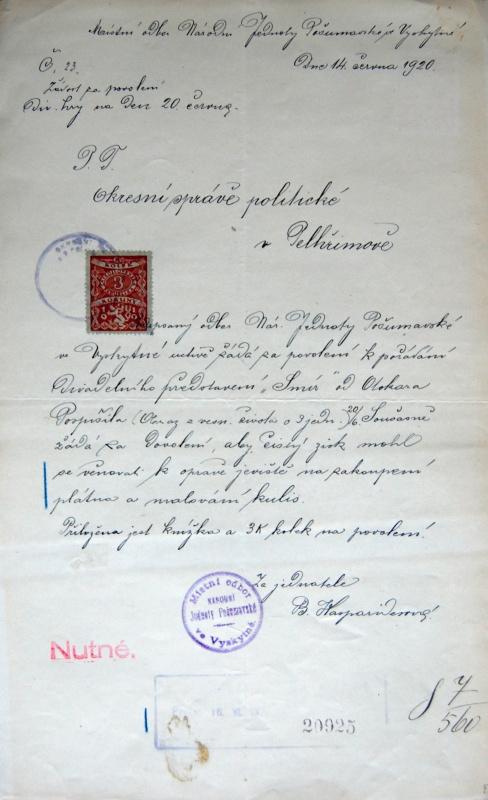 Místní odbor Národní Jednoty Pošumavské ve Vyskytné
Č. 23.
Dne 14. června 1920.
Žádost za povolení
div. hry na den 20. června.
P. T.
Okresní správě politické
v Pelhřimově
KOLEK
3
KORUNY
1919
odbor Nár. Jednoty Pošumavské
ve Vyskytné uctivě žádá za povolení k pořádání
divadelního představení „Smír" od Otokara
Pospíšila (Obraz z vesn. života o 3 jedn.) 20/6. Současně
žádá za dovolení, aby čistý zisk mohl
se věnovati k opravě jeviště na zakoupení
plátna a malování kulis.
Přiložena jest knížka a 3K kolek na povolení.
Za jednatele
B.
Místní odbor
NÁRODNÍ
Jednoty Pošumavské
ve Vyskytné.
Nutné.
20925
7/560